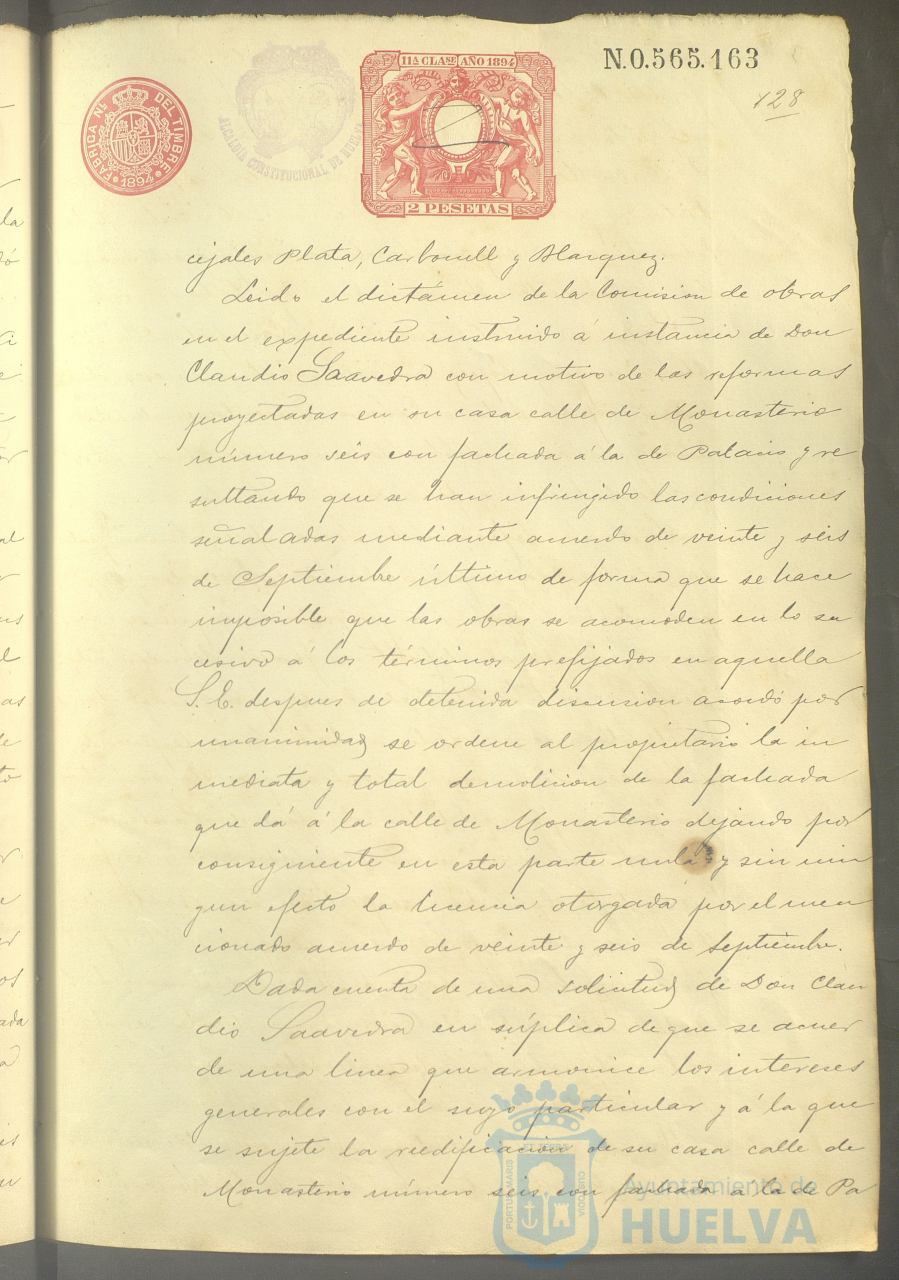 FABRICA NL. DEL TIMBRE
1894
ALCALDIA CONSTITUCIONAL DE HUELVA
11ª CLASE AÑO 1894
2 PESETAS
N.0.565.163
128
cejales Plata, Carbonell y Blazquez.
Leido el dictámen de la Comision de obras
en el expediente instruido á instancia de Don
Claudio Saavedra con motivo de las reformas
proyectadas en su casa calle de Monasterio
número séis con fachada á la de Palacio y re
sultando que se han infringido las condiciones
señaladas mediante acuerdo de veinte y séis
de Septiembre último de forma que se hace
imposible que las obras se acomoden en lo su
cesivo á los términos prefijados en aquella
S. E. despues de detenida discusion acordó por
unanimidad se ordene al propietario la in
mediata y total demolicion de la fachada
que dá á la calle de Monasterio dejando por
consiguiente en esta parte nula y sin nin
gun efecto la licencia otorgada por el men
cionado acuerdo de veinte y seis de Septiembre.
Dada cuenta de una solicitud de Don Clau
dio Saavedra en súplica de que se acuer
de una linea que armonice los intereses
generales con el suyo particular y á la que
se sujete la reedificacion de su casa calle de
Monasterio número seis con fachada á la de Pa
PORTUS MARIS
Ayuntamiento de
HUELVA